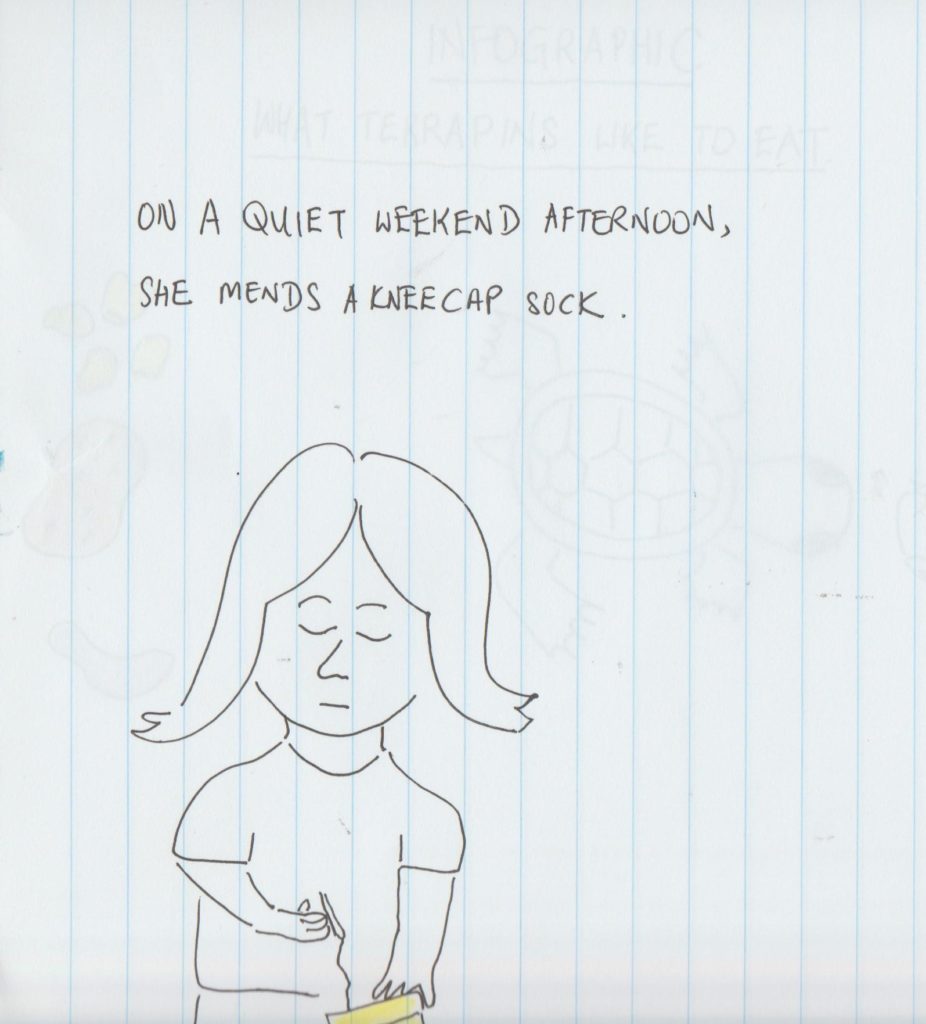 INFOGRAPHIC
WHAT TERRAPINS LIKE TO EAT
ON A QUIET WEEKEND AFTERNOON,
SHE MENDS A KNEECAP SOCK.